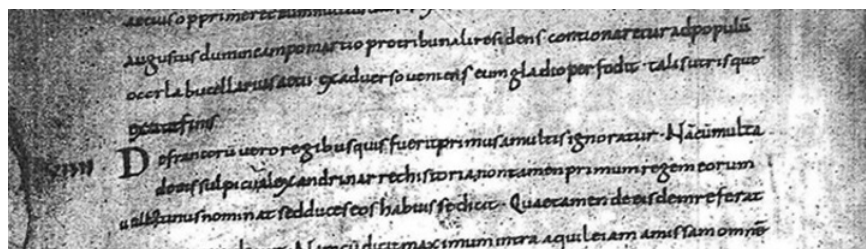 aecius opprimeret eumque nullis
augustus dum incampo martio pro tribunali residens contionaretur ad populū
occila bucellarius aeti · exaduerso ueniens eum gladio perfodit · talis utrisque
extat finis
VIIII De francorū uero regibus quis fuerit primus amultis ignoratur · Nā cū multa
de eis sulpici alexandri narret historia non tamen primum regem eorum
ullatinus nominat sed duces eos habuisse dicit · Quae tamen de eisdem referat
Nam cū dicit maximum intra aquileiam amissam omnē